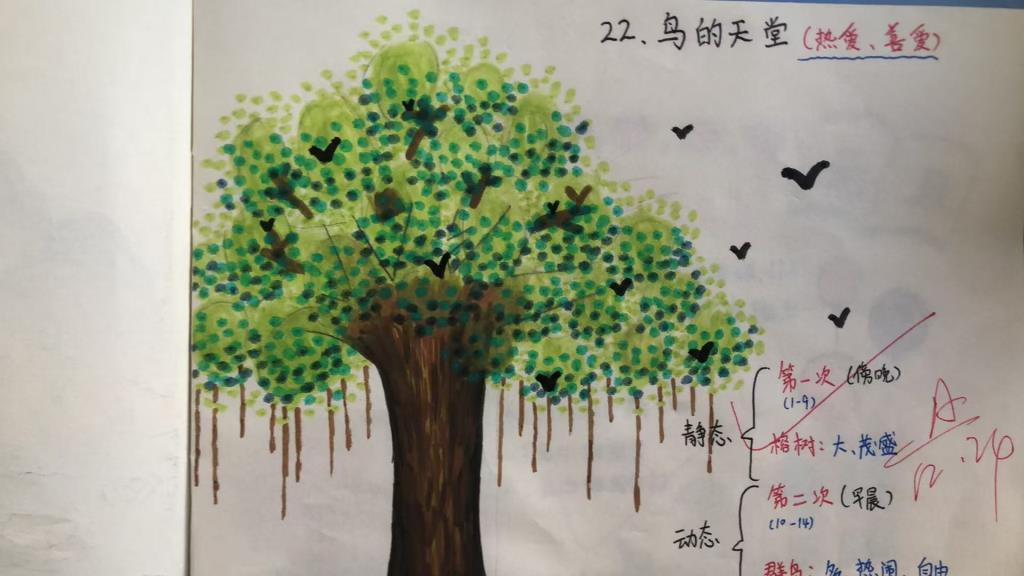 22、鸟的天堂(热爱、善爱)
第一次(傍晚)
(1-9)
静态
榕树：大、茂盛
A
12.24
第二次(早晨)
(10-14)
动态
群鸟：多、热闹、自由